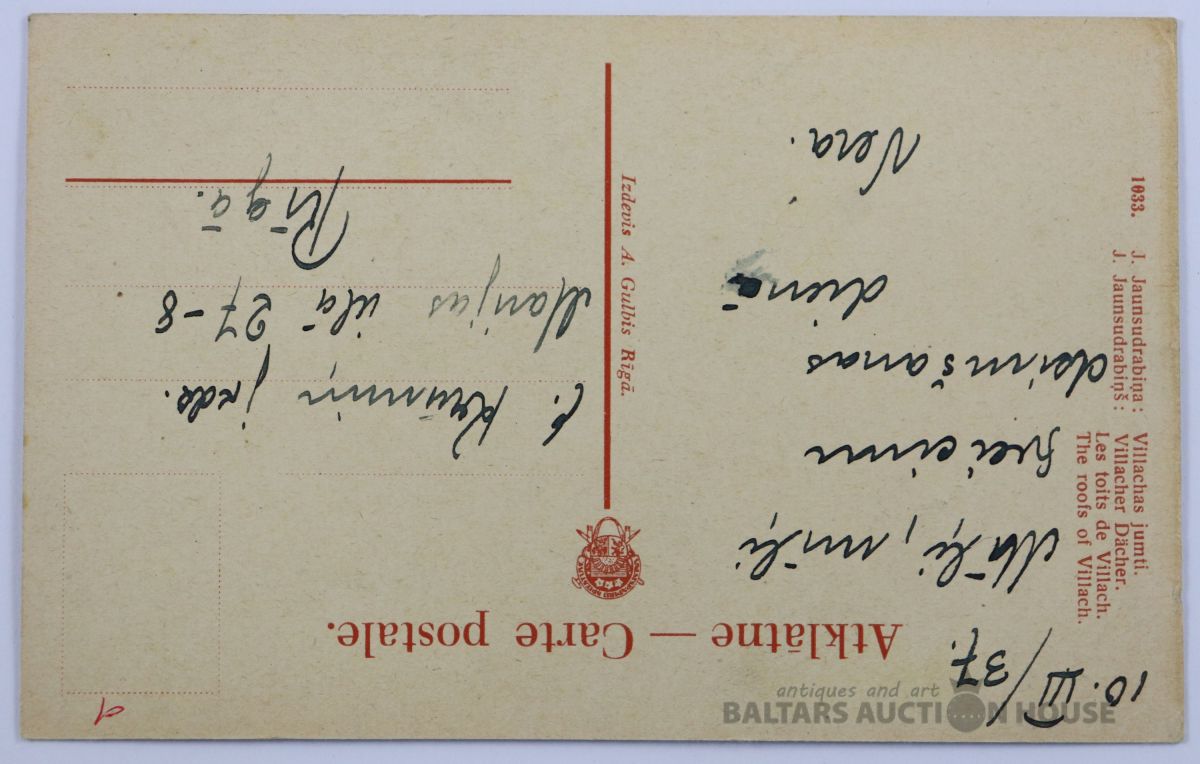 10. III/37.
Atklātne — Carte postale.
1033. J. Jaunsudrabiņa: Villachas jumti.
J. Jaunsudrabiņš: Villacher Dächer.
Les toits de Villach.
The roofs of Villach.
Mīļi, mīļi
sveicinu
dzimšanas
dienā
Vera.
Izdevis A. Gulbis Rīgā.
C. Krūmiņ jkdz.
Marijas ielā 27-8
Rīgā.
antiques and art
BALTARS AUCTION HOUSE